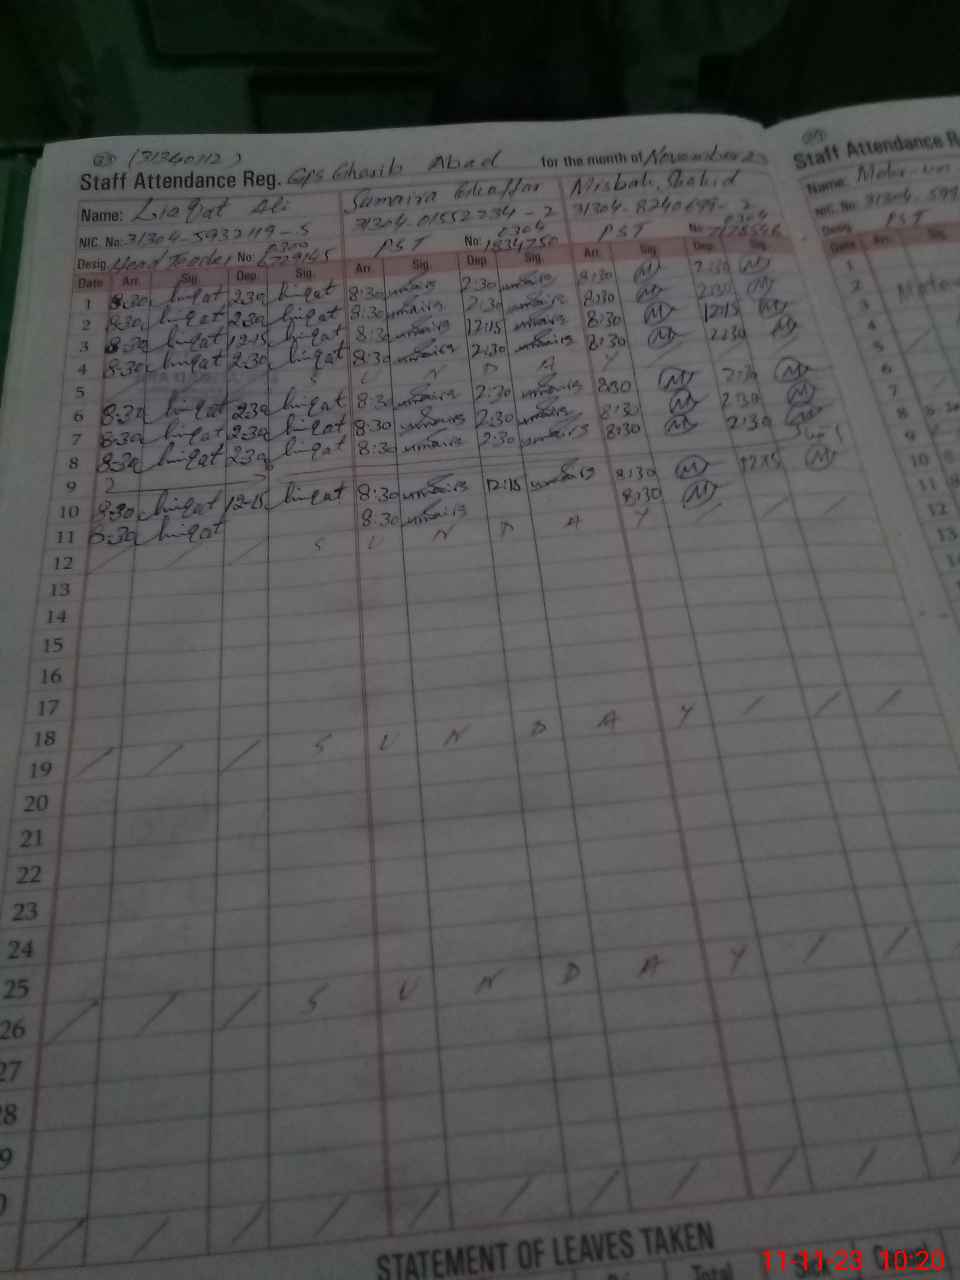 (31340112)
Staff Attendance Reg. GPS Gharib Abad for the month of November 23
Name: Liaqat Ali Sumaira Ghaffar Misbah Shahid
NIC. No: 31304-5932119-5 31304-01552234-2 31304-8240699-2
Desig. Head Teacher No: PST No: PST No:
Date Arr. Sig. Dep. Sig. Arr. Sig. Dep. Sig. Arr. Sig. Dep. Sig.
1 8:30 liaqat 2:30 liaqat 8:30 2:30 8:30 M 2:30 M
2 8:30 liaqat 2:30 liaqat 8:30 2:30 8:30 M 2:30 M
3 8:30 liaqat 12:15 liaqat 8:30 12:15 8:30 M 12:15 M
4 8:30 liaqat 2:30 liaqat 8:30 2:30 8:30 M 2:30 M
5 S U N D A Y
6 8:30 liaqat 2:30 liaqat 8:30 2:30 8:30 M 2:30 M
7 8:30 liaqat 2:30 liaqat 8:30 2:30 8:30 M 2:30 M
8 8:30 liaqat 2:30 liaqat 8:30 2:30 8:30 M 2:30 M
9
10 8:30 liaqat 12:15 liaqat 8:30 12:15 8:30 M 12:15 M
11 8:30 liaqat 8:30 8:30 M
12 S U N D A Y
13
14
15
16
17
18
19 S U N D A Y
20
21
22
23
24
25
26 S U N D A Y
27
28
9
0
STATEMENT OF LEAVES TAKEN
Total
Staff Attendance R
Name:
NIC. No: 31304-599
Desig. PST
Date Arr. Sig.
1
2
3
4
5
6
7
8
9
10
11
12
13
11-11-23 10:20